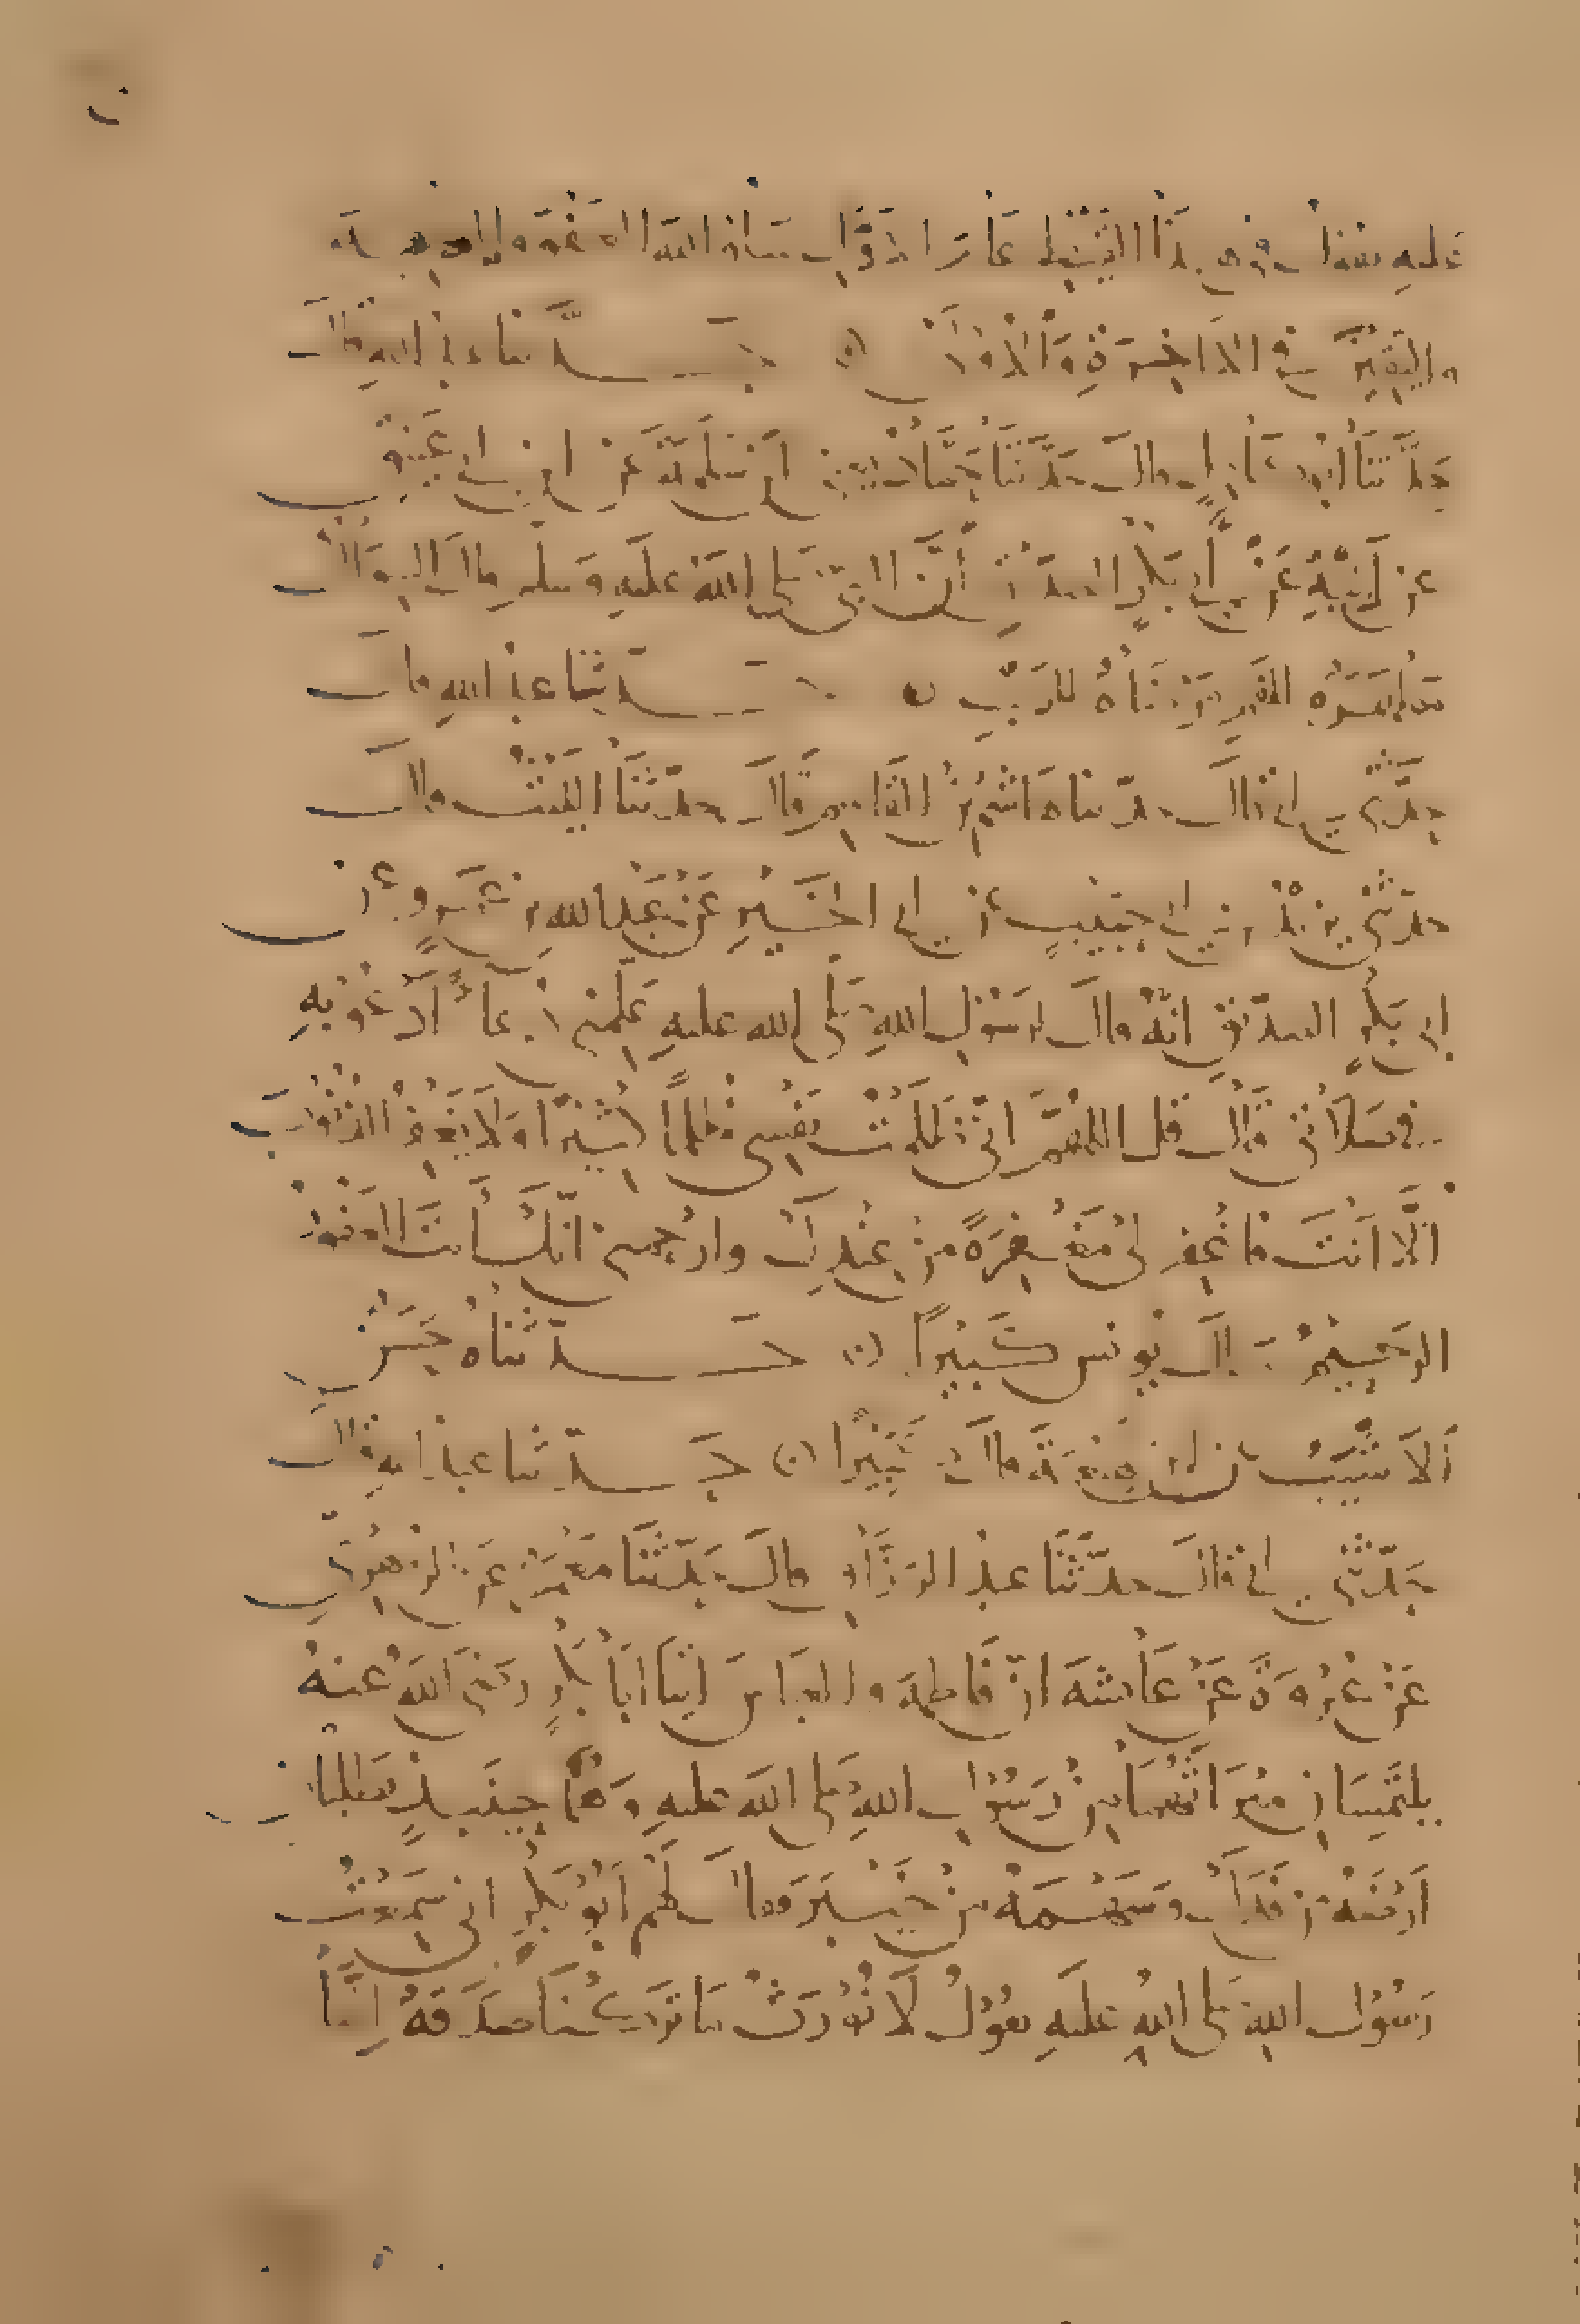 عليه يقول في هذا القيظ عام الاول سلوا الله العفو والعافية
واليقين في الاخرة والاولى حدثنا عبد الله قال
حدثنا ابو كامل قال حدثنا حماد يعني ابن سلمة عن ابن ابي عتيق
عن ابيه عن ابي بكر الصديق أن النبي صلى الله عليه وسلم قال السواك
مطهرة للفم مرضاة للرب حدثنا عبد الله قال
حدثني ابي قال حدثنا هاشم بن القاسم قال حدثنا الليث قال
حدثني يزيد بن ابي حبيب عن ابي الخير عن عبد الله بن عمرو عن
ابي بكر الصديق انه قال لرسول الله صلى الله عليه علمني دعاء أدعو به
في صلاتي قال قل اللهم اني ظلمت نفسي ظلما كثيرا ولا يغفر الذنوب
الا انت فاغفر لي مغفرة من عندك وارحمني انك أنت الغفور
الرحيم قال يونس كبيرا حدثناه حسن
الاشيب عن ابن لهيعة قال كبيرا حدثنا عبد الله قال
حدثني ابي قال حدثنا عبد الرزاق قال حدثنا معمر عن الزهري
عن عروة عن عائشة ان فاطمة والعباس اتيا ابا بكر رضي الله عنه
يلتمسان ميراثهما من رسول الله صلى الله عليه وهما حينئذ يطلبان
أرضه من فدك وسهمه من خيبر فقال لهم ابو بكر اني سمعت
رسول الله صلى الله عليه يقول لا نورث ما تركنا صدقة إنما